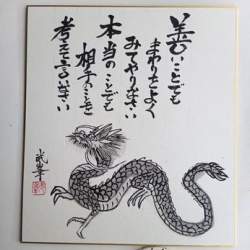 善いことでも
まわりをよく
みてやりなさい
本当のことでも
相手のことを
考えて言いなさい